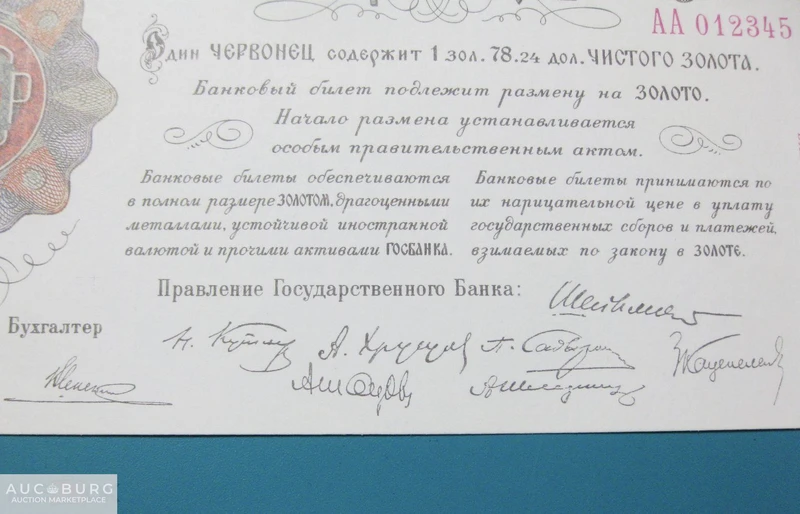 АА 012345
Один ЧЕРВОНЕЦ содержит 1 зол. 78.24 дол. ЧИСТОГО ЗОЛОТА.
Банковый билет подлежит размену на ЗОЛОТО.
Начало размена устанавливается
особым правительственным актом.
Банковые билеты обеспечиваются
в полном размере ЗОЛОТОМ, драгоценными
металлами, устойчивой иностранной
валютой и прочими активами ГОСБАНКА.
Банковые билеты принимаются по
их нарицательной цене в уплату
государственных сборов и платежей,
взимаемых по закону в ЗОЛОТЕ.
Правление Государственного Банка:
Бухгалтер
AUCBURG
AUCTION MARKETPLACE